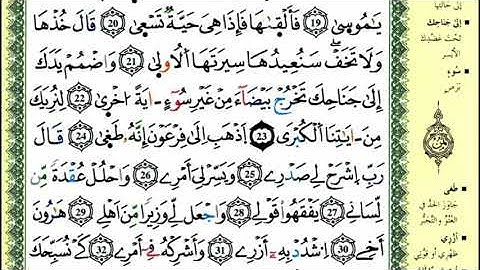 يَٰمُوسِىٰ 19 فَأَلْقَىٰهَا فَإِذَا هِىَ حَيَّةٌ تَسْعَىٰ 20 قَالَ خُذْهَا
وَلَا تَخَفْ سَنُعِيدُهَا سِيرَتَهَا اَلُاولَىٰ 21 وَاضْمُمْ يَدَكَ
إِلَىٰ جَنَاحِكَ تَخْرُجْ بَيْضَآءَ مِنْ غَيْرِ سُوٓءٍ ـايَةً اُخْرَىٰ 22 لِنُرِيَكَ
مِنَ ـايَٰتِنَا اَلْكُبْرَى 23 اَذْهَبِ اِلَىٰ فِرْعَوْنَ إِنَّهُۥ طَغَىٰ 24 قَالَ
رَبِّ اِشْرَحْ لِے صَدْرِے 25 وَيَسِّرْ لِىٓ أَمْرِے 26 وَاحْلُلْ عُقْدَةً مِّن
لِّسَانِے 27 يَفْقَهُواْ قَوْلِے 28 وَاجْعَل لِّے وَزِيراً مِّنَ اَهْلِے 29 هَٰرُونَ
أَخِے 30 اَشْدُدْ بِهِۦٓ أَزْرِے 31 وَأَشْرِكْهُ فِےٓ أَمْرِے 32 كَےْ نُسَبِّحَكَ
إلى حالتها
إلى جناحك
تحت عضدك
الأيسر
سوء
برص
طغى
جاوز الحد في
العتو والتجبر
أزري
ظهري أو قوتي